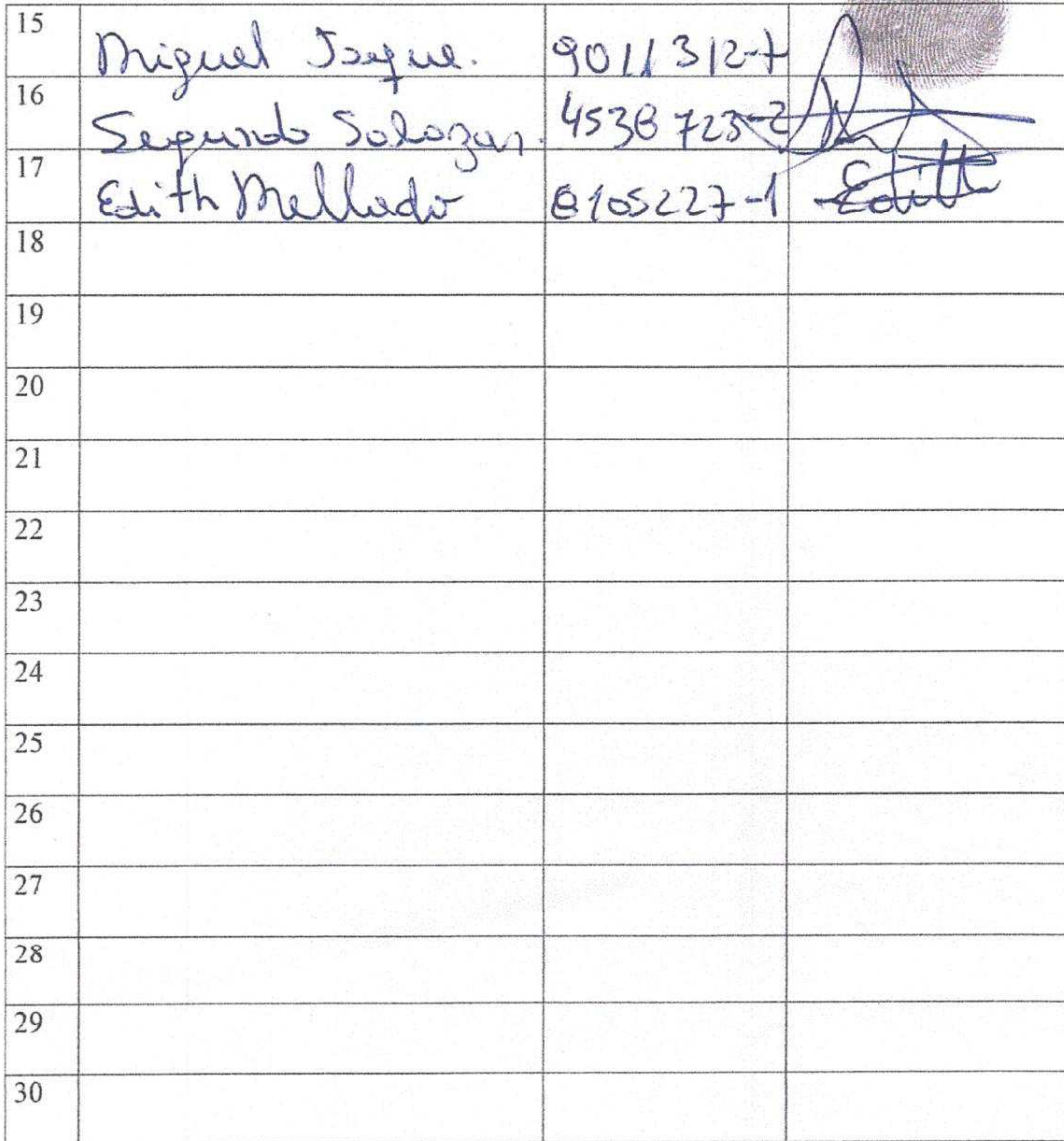 15 Miguel 9011312-7
16 Segundo Salazar. 4538723-2
17 Edith Mellado 8105227-1 Edith
18
19
20
21
22
23
24
25
26
27
28
29
30